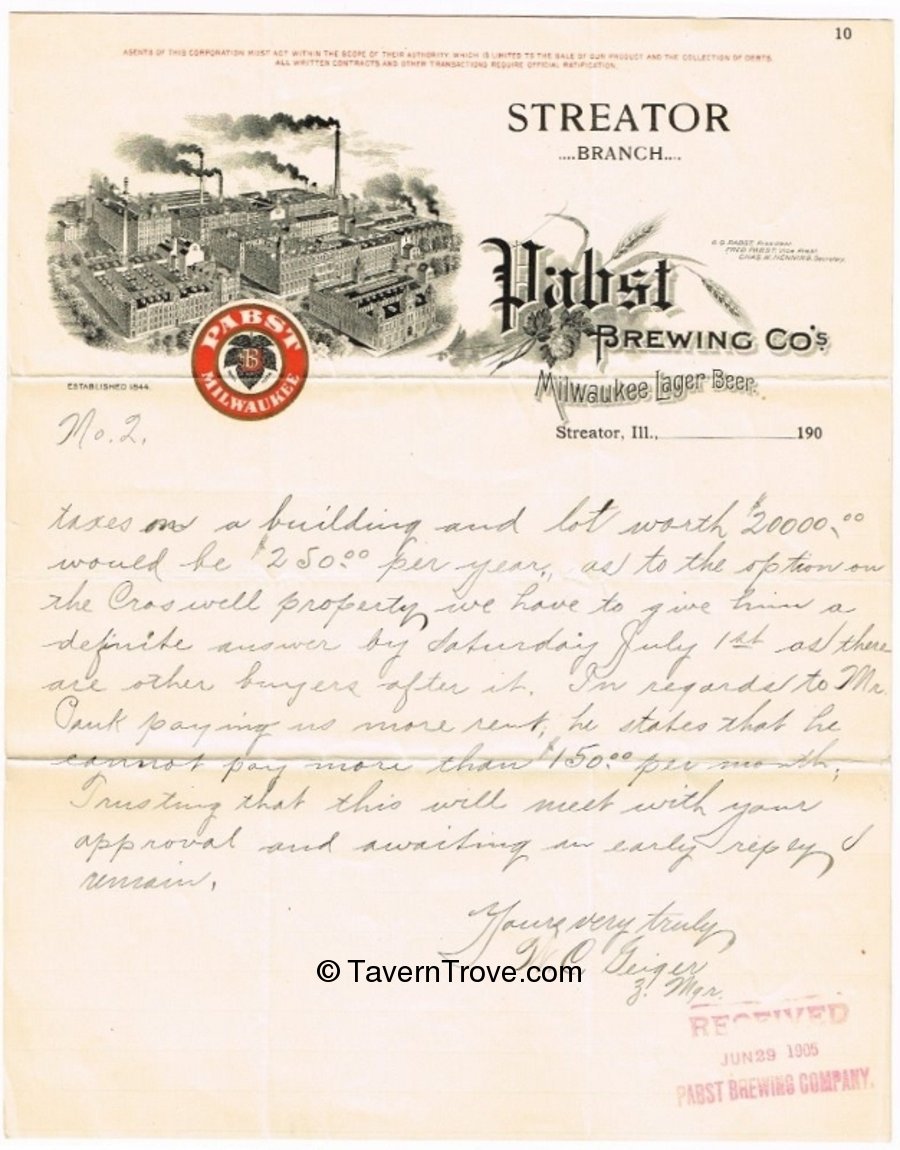 10
AGENTS OF THIS CORPORATION MUST ACT WITHIN THE SCOPE OF THEIR AUTHORITY, WHICH IS LIMITED TO THE SALE OF OUR PRODUCT AND THE COLLECTION OF DEBTS.
ALL WRITTEN CONTRACTS AND OTHER TRANSACTIONS REQUIRE OFFICIAL RATIFICATION.
STREATOR
....BRANCH....
G. G. PABST, President.
FRED PABST, Vice Prest.
CHAS. W. HENNING, Secretary.
Pabst
BREWING CO'S
Milwaukee Lager Beer.
PABST
B
MILWAUKEE
ESTABLISHED 1844.
Streator, Ill., 190
No. 2.
taxes on a building and lot worth $20000.00
would be $250.00 per year, as to the option on
the Croswell property we have to give him a
definite answer by Saturday July 1st as there
are other buyers after it. In regards to Mr.
paying us more rent, he states that he
cannot pay more than $150.00 per month,
Trusting that this will meet with your
approval and awaiting an early reply I
remain,
Yours very truly
W C Geiger
Mgr.
© TavernTrove.com
RECEIVED
JUN 29 1905
PABST BREWING COMPANY.